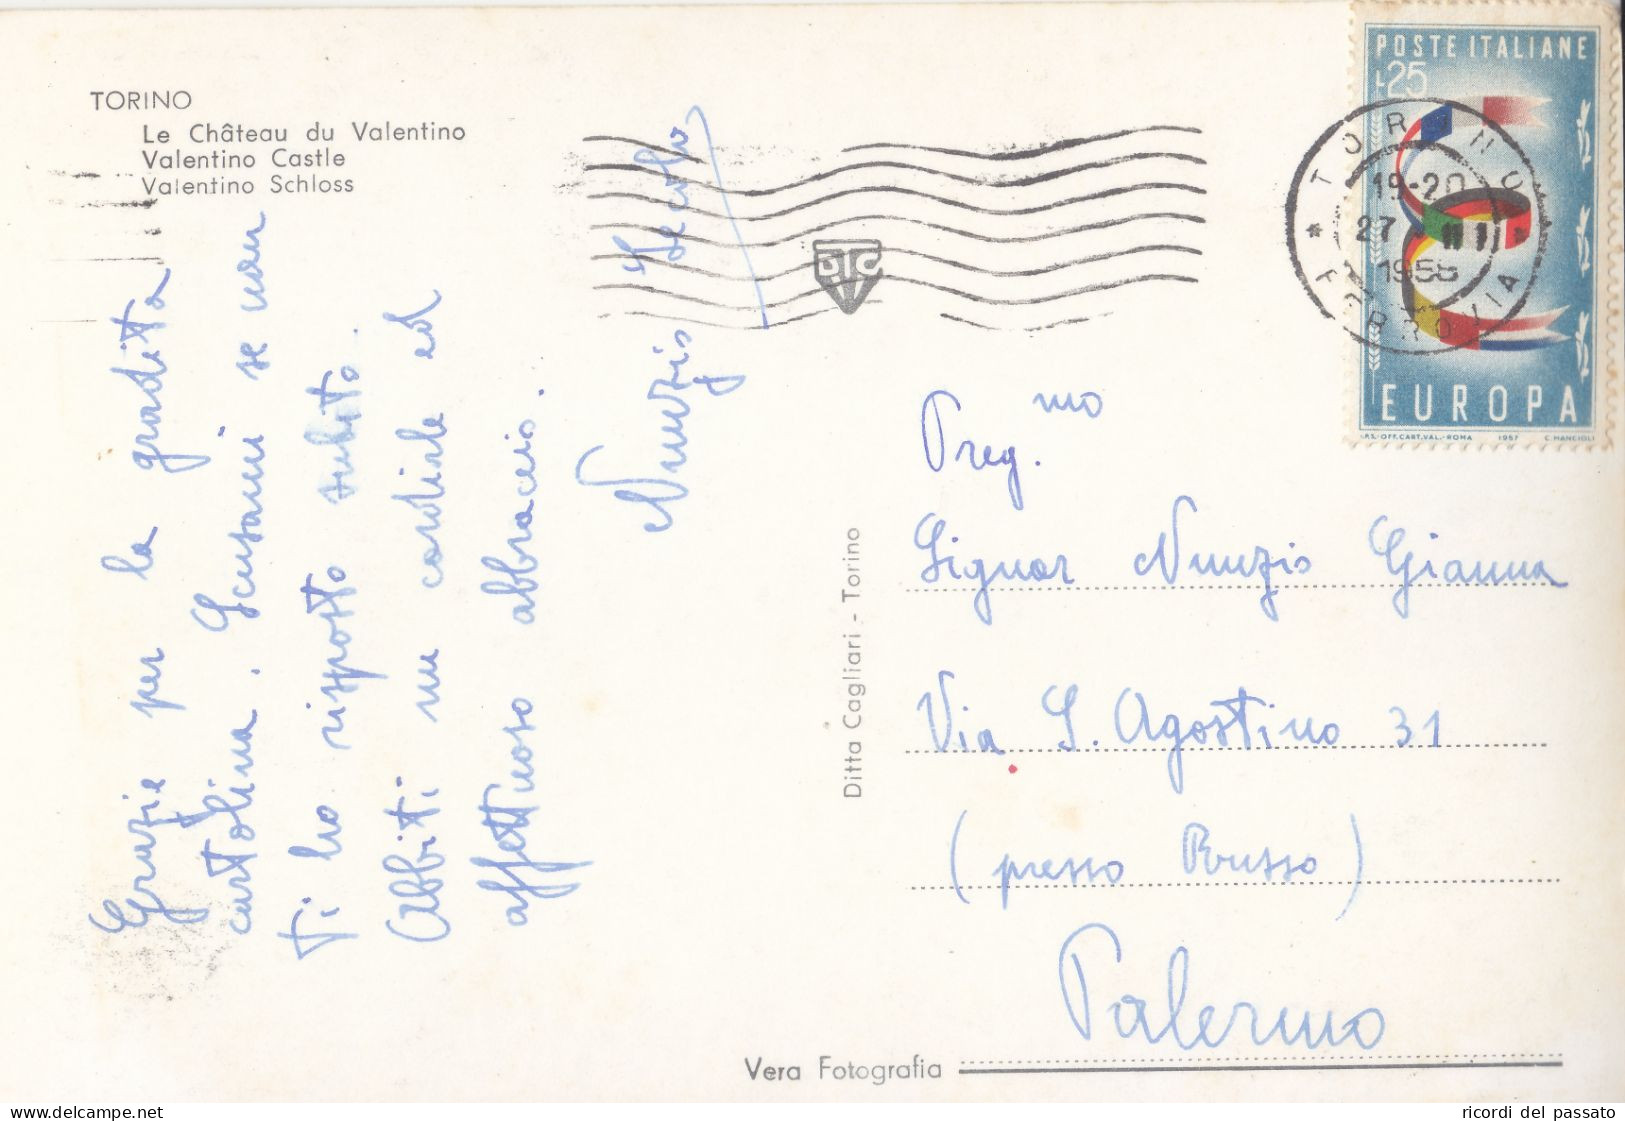 TORINO
Le Château du Valentino
Valentino Castle
Valentino Schloss
Grazie per la gradita
cartolina. Scusami se non
Ti ho risposto subito.
Abbiti un cordiale ed
affettuoso abbraccio.
Nunzio
Ditta Cagliari - Torino
POSTE ITALIANE
L25
EUROPA
I.P.S.-OFF.CART.VAL.-ROMA 1957 C. MANCIOLI
TORINO
19-20
27 III
1958
FERROVIA
PTC
Preg.mo
Signor Nunzio Gianna
Via S. Agostino 31
(presso Russo)
Palermo
Vera Fotografia
www.delcampe.net
ricordi del passato